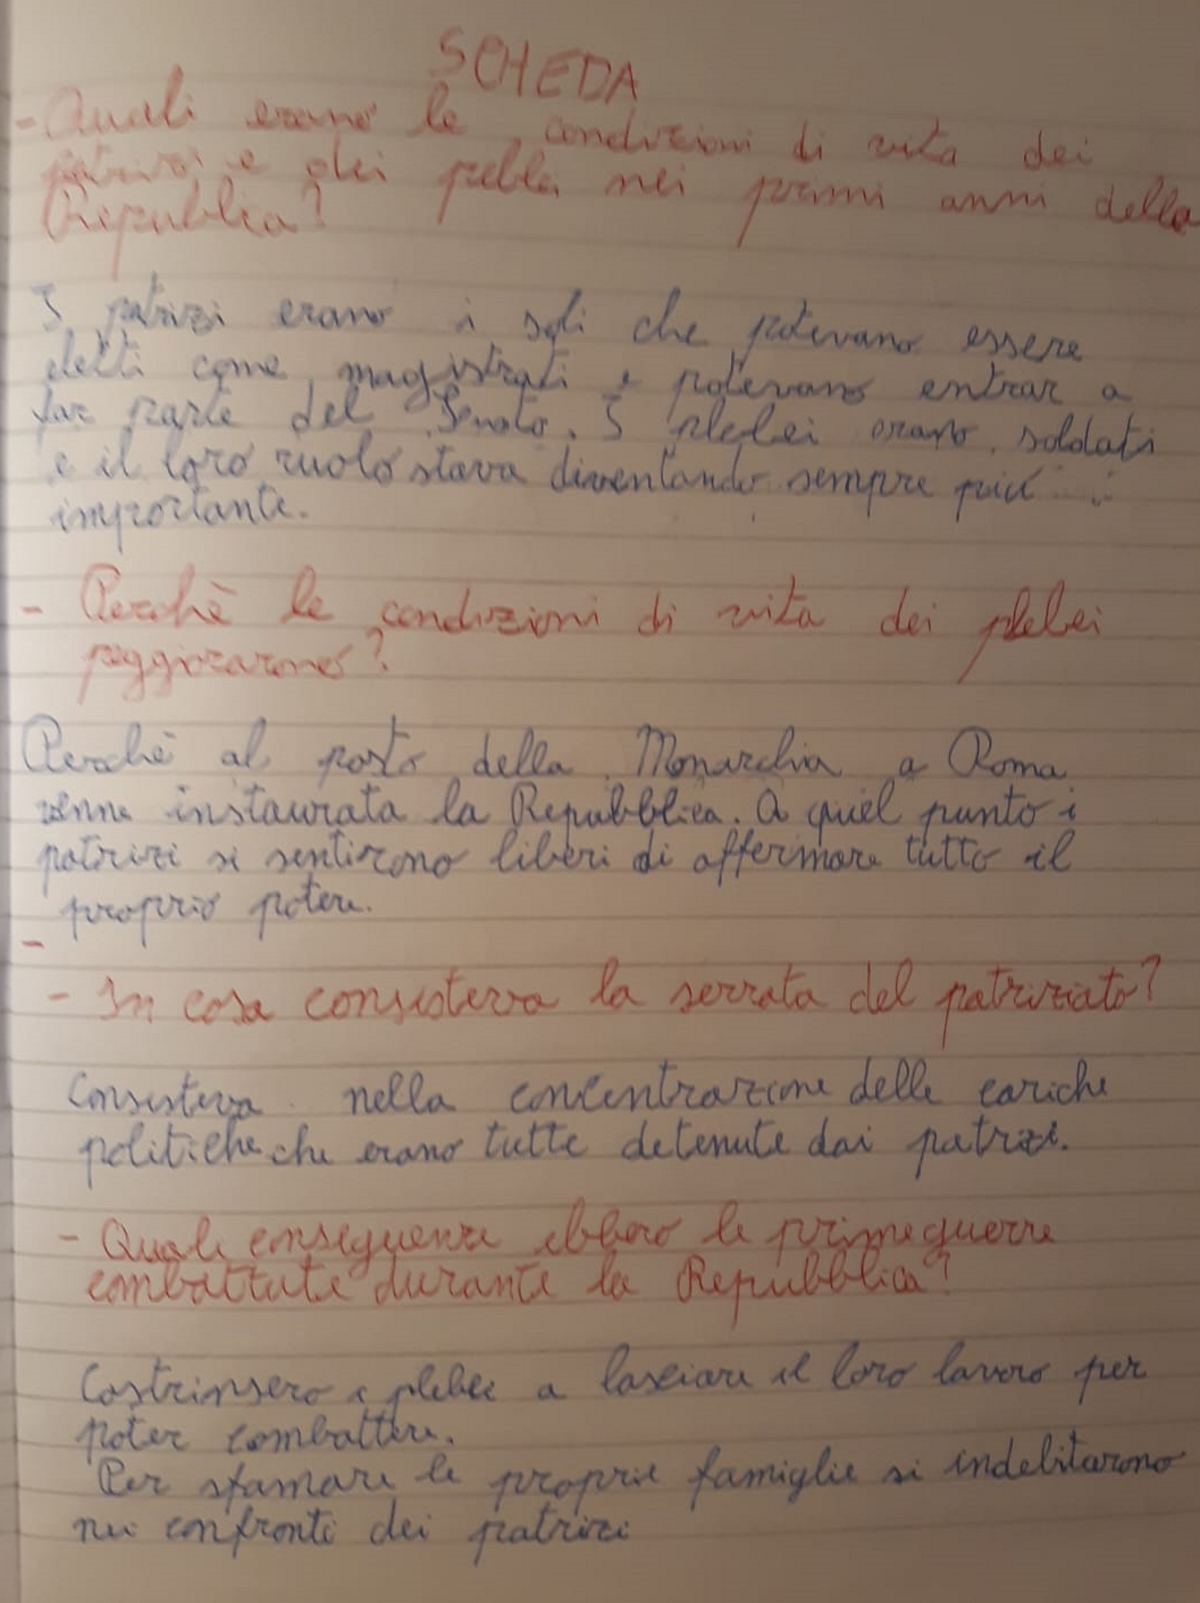 SCHEDA
- Quali erano le condizioni di vita dei
patrizi e dei plebei nei primi anni della
Repubblica?
I patrizi erano i soli che potevano essere
eletti come magistrati e potevano entrar a
far parte del Senato. I plebei erano soldati
e il loro ruolo stava diventando sempre più
importante.
- Perchè le condizioni di vita dei plebei
peggiorarono?
Perchè al posto della Monarchia a Roma
venne instaurata la Repubblica. A quel punto i
patrizi si sentirono liberi di affermare tutto il
proprio potere.
-
- In cosa consisteva la serrata del patriziato?
Consisteva nella concentrazione delle cariche
politiche che erano tutte detenute dai patrizi.
- Quali conseguenze ebbero le prime guerre
combattute durante la Repubblica?
Costrinsero i plebei a lasciare il loro lavoro per
poter combattere.
Per sfamare le proprie famiglie si indebitarono
nei confronti dei patrizi